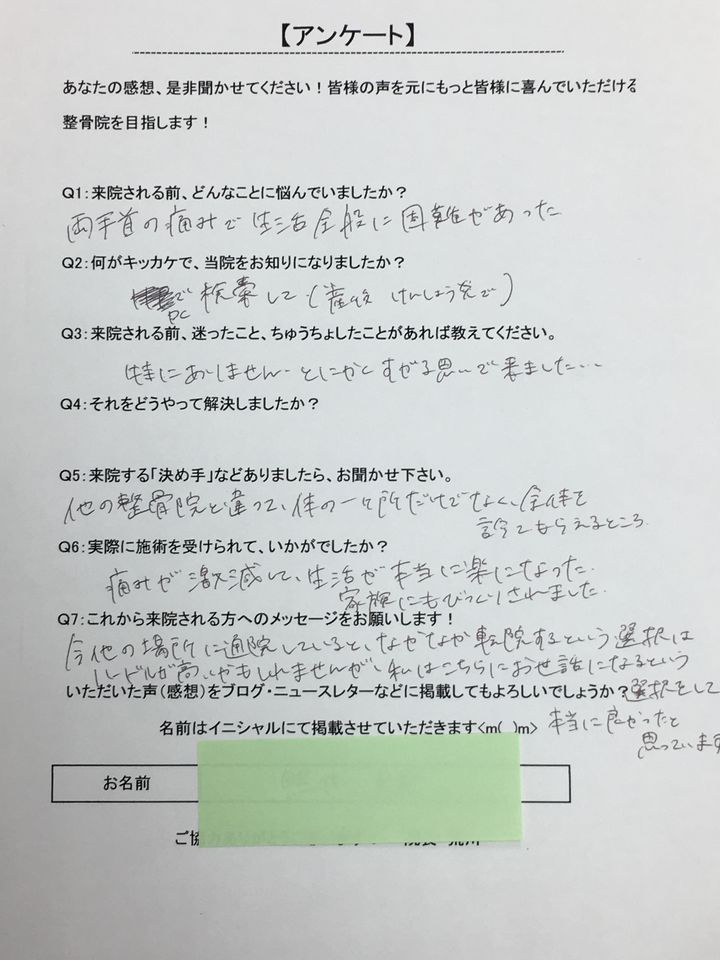 【アンケート】
あなたの感想、是非聞かせてください！皆様の声を元にもっと皆様に喜んでいただける
整骨院を目指します！
Q1：来院される前、どんなことに悩んでいましたか？
両手首の痛みで生活全般に困難があった
Q2：何がキッカケで、当院をお知りになりましたか？
PCで検索して（産後 けんしょう炎で）
Q3：来院される前、迷ったこと、ちゅうちょしたことがあれば教えてください。
特にありません。とにかくすがる思いで来ました…
Q4：それをどうやって解決しましたか？
Q5：来院する「決め手」などありましたら、お聞かせ下さい。
他の整骨院と違って、体の一ヶ所だけでなく、全体を
診てもらえるところ。
Q6：実際に施術を受けられて、いかがでしたか？
痛みが激減して、生活が本当に楽になった。
家族にもびっくりされました。
Q7：これから来院される方へのメッセージをお願いします！
今他の場所に通院していると、なかなか転院するという選択は
ハードルが高いかもしれませんが、私はこちらにお世話になるという
いただいた声（感想）をブログ・ニュースレターなどに掲載してもよろしいでしょうか？選択をして
名前はイニシャルにて掲載させていただきます<m( )m> 本当に良かったと
思っています
お名前
ご協